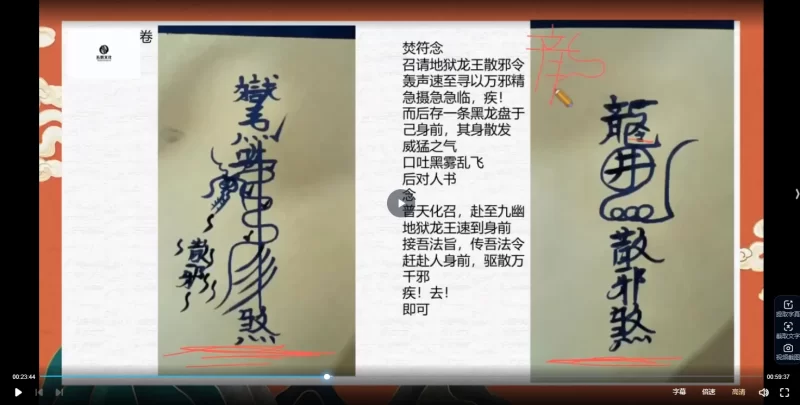 卷
焚符念
召请地狱龙王散邪令
轰声速至寻以万邪精
急摄急急临，疾！
而后存一条黑龙盘于
己身前，其身散发
威猛之气
口吐黑雾乱飞
后对人书
念
普天化召，赴至九幽
地狱龙王速到身前
接吾法旨，传吾法令
赶赴人身前，驱散万
千邪
疾！去！
即可
散邪
煞
龍
井
散
邪
煞
提取字幕
截取文字
视频截图
00:23:44
00:59:37
字幕
倍速
高清